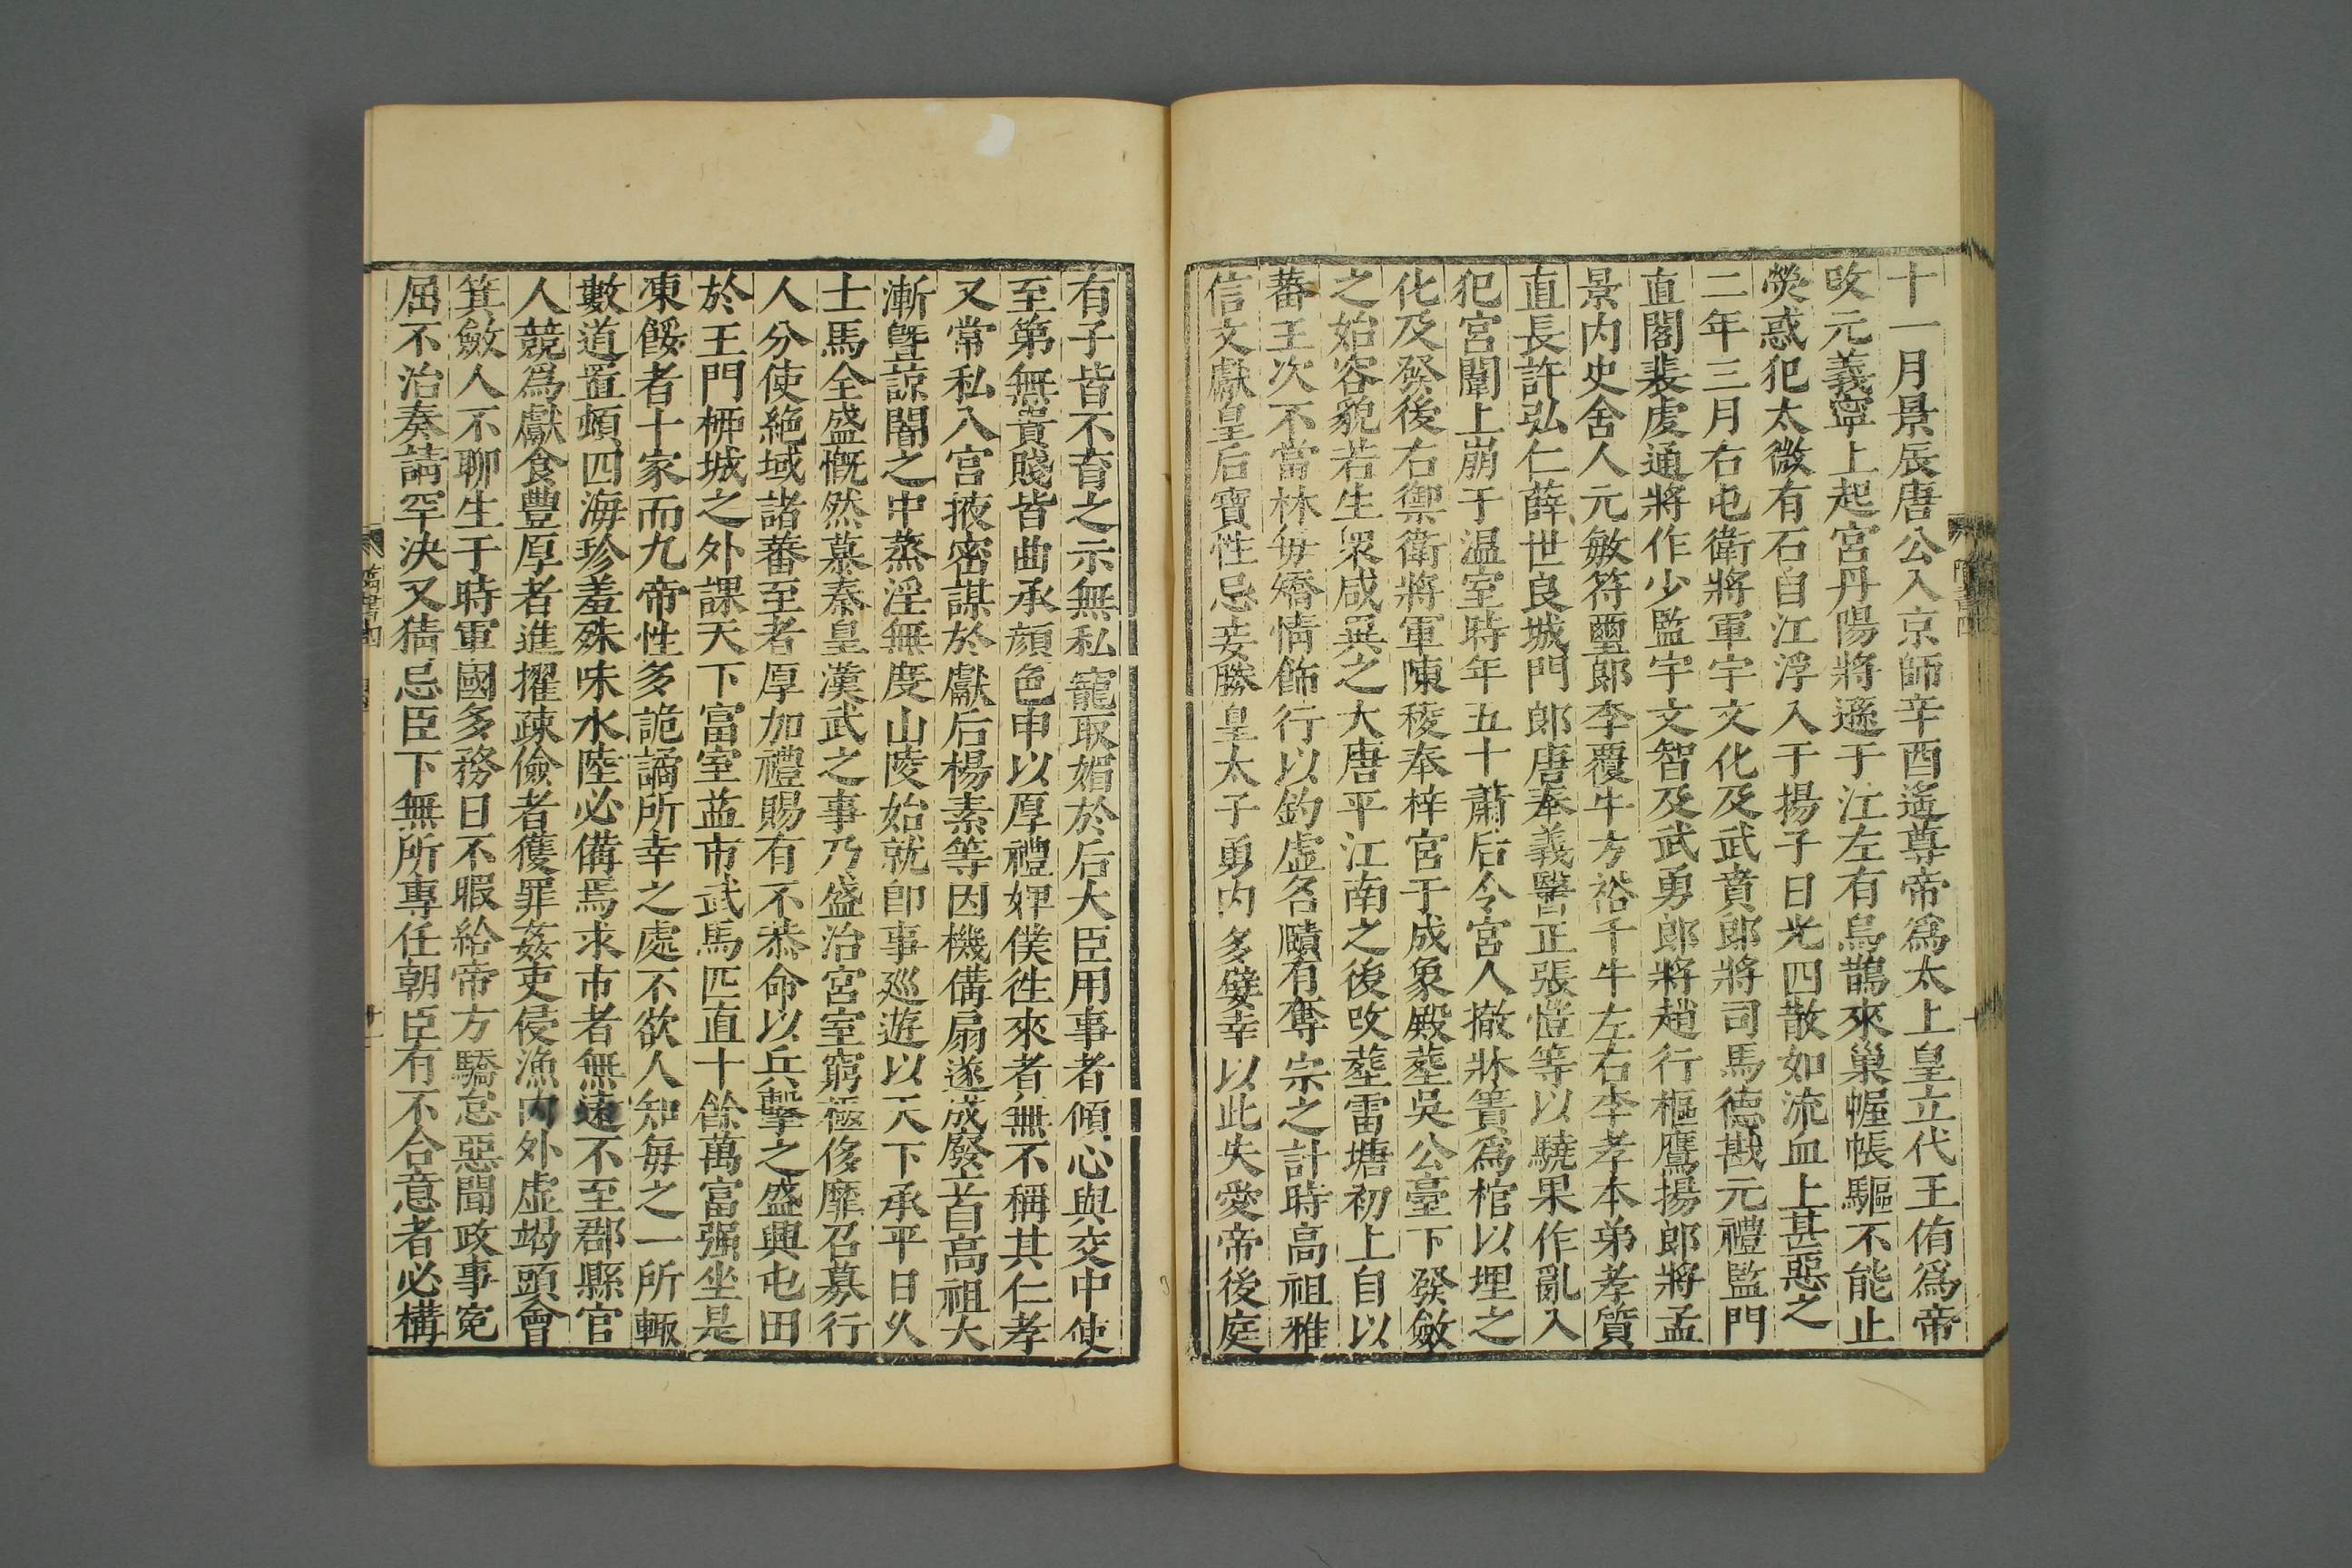 十一月景辰唐公入京師辛酉遙尊帝爲太上皇立代王侑爲帝
改元義寧上起宮丹陽將遜于江左有烏鵲來巢幄帳驅不能止
熒惑犯太微有石自江浮入于揚子日光四散如流血上甚惡之
二年三月右屯衛將軍宇文化及武賁郎將司馬德戡元禮監門
直閣裴虔通將作少監宇文智及武勇郎將趙行樞鷹揚郎將孟
景内史舍人元敏符璽郎李覆牛方裕千牛左右李孝本弟孝質
直長許弘仁薛世良城門郎唐奉義醫正張愷等以驍果作亂入
犯宮闈上崩于温室時年五十蕭后令宮人撤牀簀爲棺以埋之
化及發後右禦衛將軍陳稜奉梓宮于成象殿塟吳公臺下發斂
之始容貌若生衆咸異之大唐平江南之後改塟雷塘初上自以
蕃王次不當林每矯情飾行以釣虛名隫有奪宗之計時高祖雅
信文獻皇后寶性忌妾媵皇太子勇内多嬖幸以此失愛帝後庭
有子皆不育之示無私寵取媚於后大臣用事者傾心與交中使
至第無貴賤皆曲承顔色申以厚禮婢僕徃來者無不稱其仁孝
又常私入宮掖密謀於獻后楊素等因機構扇遂成廢立首高祖大
漸曁諒闇之中蒸淫無度山陵始就即事巡遊以天下承平日久
士馬全盛慨然慕秦皇漢武之事乃盛治宮室窮極侈靡召募行
人分使絶域諸蕃至者厚加禮賜有不恭命以兵擊之盛興屯田
於玉門栁城之外課天下富室益市武馬匹直十餘萬富强坐是
凍餒者十家而九帝性多詭譎所幸之處不欲人知每之一所輙
數道置頓四海珍羞殊味水陸必備焉求市者無遠不至郡縣官
人競爲獻食豐厚者進擢疎儉者獲罪姦吏侵漁内外虛竭頭會
箕斂人不聊生于時軍國多務日不暇給帝方驕怠惡聞政事寃
屈不治奏請罕決又猜忌臣下無所專任朝臣有不合意者必構